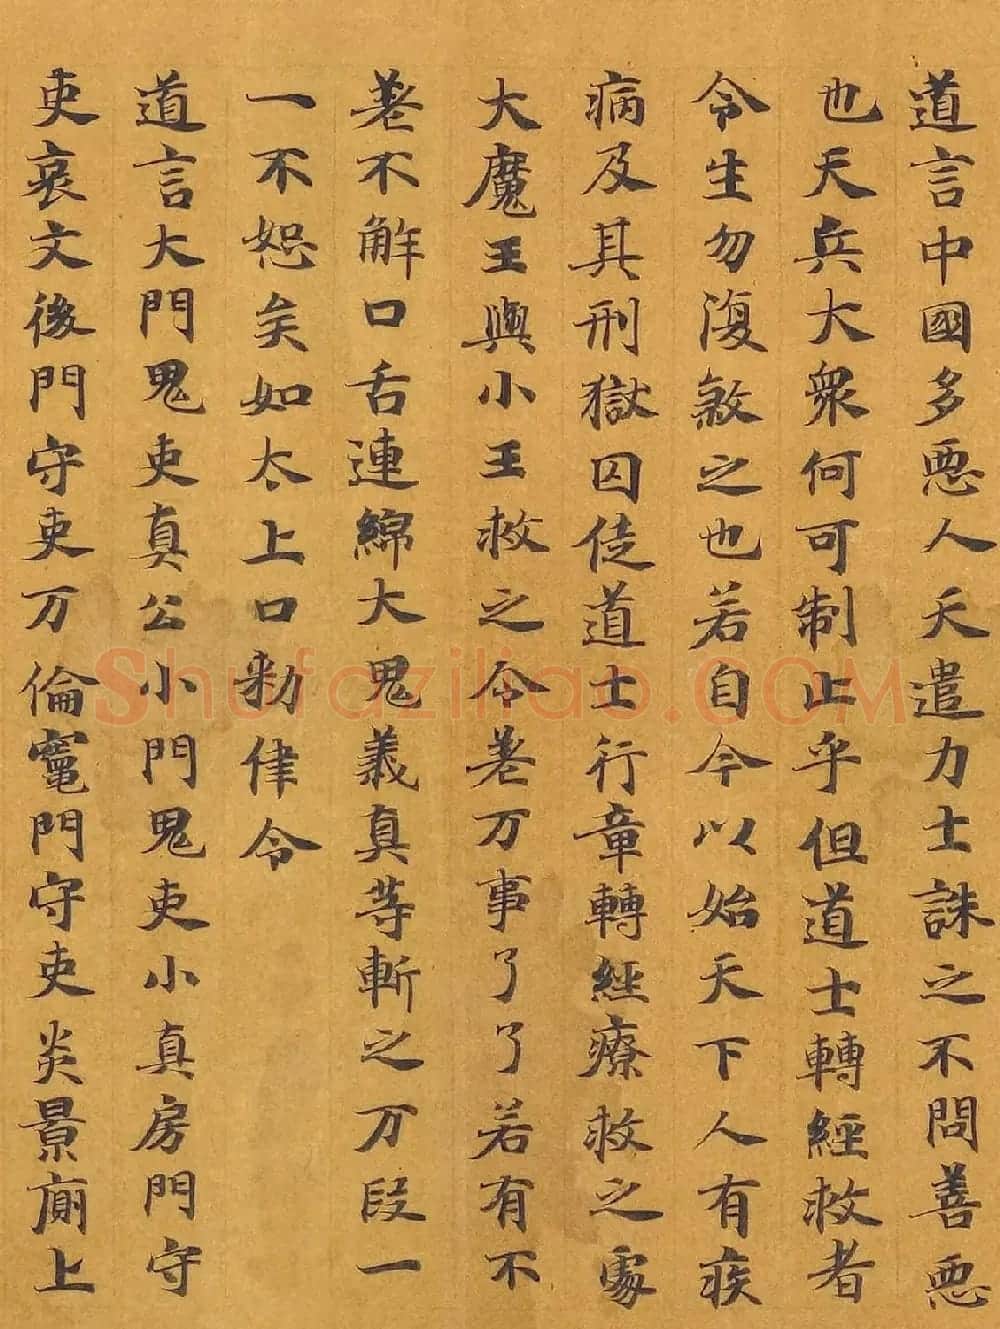 道言中國多悪人天遣力士誅之不問善悪
也天兵大衆何可制止乎但道士轉經救者
令生勿復煞之也若自今以始天下人有疾
病及其刑獄囚徒道士行章轉經療救之處
大魔王與小王救之令差万事了了若有不
差不解口舌連綿大鬼義真等斬之万段一
一不恕矣如太上口勑律令
道言大門鬼吏真公小門鬼吏小真房門守
吏哀文後門守吏万倫竈門守吏炎景廁上
Shufaziliao.COM